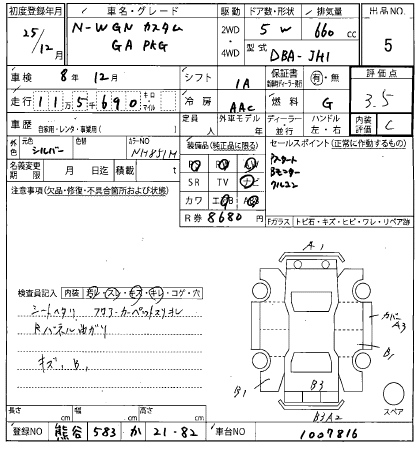 初度登録年月 車名・グレード 駆動 ドア数・形状 排気量 出品NO.
25/12月 N-WGN カスタム G A PKG 2WD・4WD 5 W 660 cc 5
型式 DBA-JH1
車検 8年 12月 シフト IA 保証書 有・無 評価点
走行 115690 キロ・マイル 冷房 AAC 燃料 G 3.5
車歴 自家用・レンタ・事業用( ) 定員 人 外車モデル 年 ディーラー・並行 ハンドル 左・右 内装評価 C
外色 元色 シルバー 色替 カラーNO NH851M 装備品(純正品に限る) セールスポイント(正常に作動するもの)
名義変更期限 月 日迄 積載 t SR TV ナビ
Pスタート
Bモニター
注意事項(欠品・修復・不具合箇所および状態) カワ エアB
R券 8680 円 Fガラス トビ石・キズ・ヒビ・ワレ・リペア跡
A1
検査員記入 内装 ヨレ・スレ・キズ・キレ・コゲ・穴
シートヘタリ フロアーカーペットスリヨレ
Rパネル曲がり
キズ、B、
カバー A3
B1
B1
B3
B3A2
スペア
長さ cm 幅 cm 高さ cm
登録NO 熊谷 583 か 21-82 車台NO 1007816